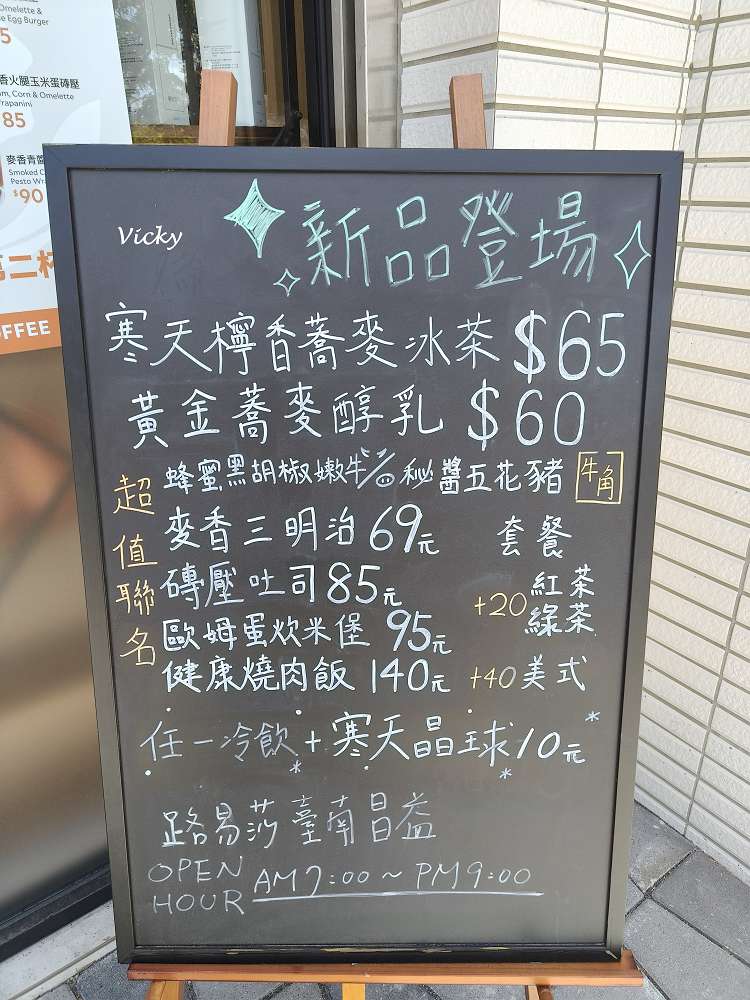 Omelette &
e Egg Burger
5
香火腿玉米蛋磚壓
Corn & Omelette
85
麥香青醬
Smoked
Pesto
$90
第二杯
FFEE
Vicky
新品登場
寒天檸香蕎麥冰茶 $65
黃金蕎麥醇乳 $60
超值聯名
蜂蜜黑胡椒嫩牛/秘醬五花豬 牛角
麥香三明治 69元
磚壓吐司 85元
歐姆蛋炊米堡 95元
健康燒肉飯 140元
套餐
+20 紅茶
綠茶
+40 美式
任一冷飲 + 寒天晶球 10元
路易莎 臺南昌益
OPEN
HOUR AM 7:00 ~ PM 9:00